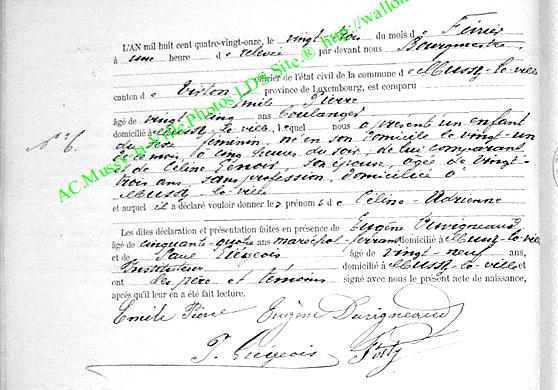 L'AN mil huit cent quatre-vingt-onze, le vingt-trois du mois de Février
à une heure de relevée par devant nous Bourgmestre
officier de l'état civil de la commune de Mussy-la-ville
canton de Virton province de Luxembourg, est comparu
Emile Pierre
âgé de vingt-cinq ans boulanger
domicilié à Mussy-la-ville, lequel nous a présenté un enfant
du sexe féminin, né en son domicile le vingt-un
de ce mois à cinq heures du soir, de lui comparant
et de Céline Lenoir, son épouse, âgée de vingt-
trois ans, sans profession, domiciliée à
Mussy-la-ville
et auquel il a déclaré vouloir donner les prénoms de Céline-Adrienne
Les dites déclaration et présentation faites en présence de Eugène Duvigneaud
âgé de cinquante-quatre ans maréchal-ferrant domicilié à Mussy-la-ville
et de Paul Liégeois âgé de vingt-neuf ans,
Instituteur domicilié à Mussy-la-ville et
ont les père et témoins signé avec nous le présent acte de naissance,
après qu'il leur en a été fait lecture.
Emile Pierre Eugène Duvigneaud
P. Liégeois
N° 6.
AC.Mussy-la-Ville Photos LD® Site.® http://wallon